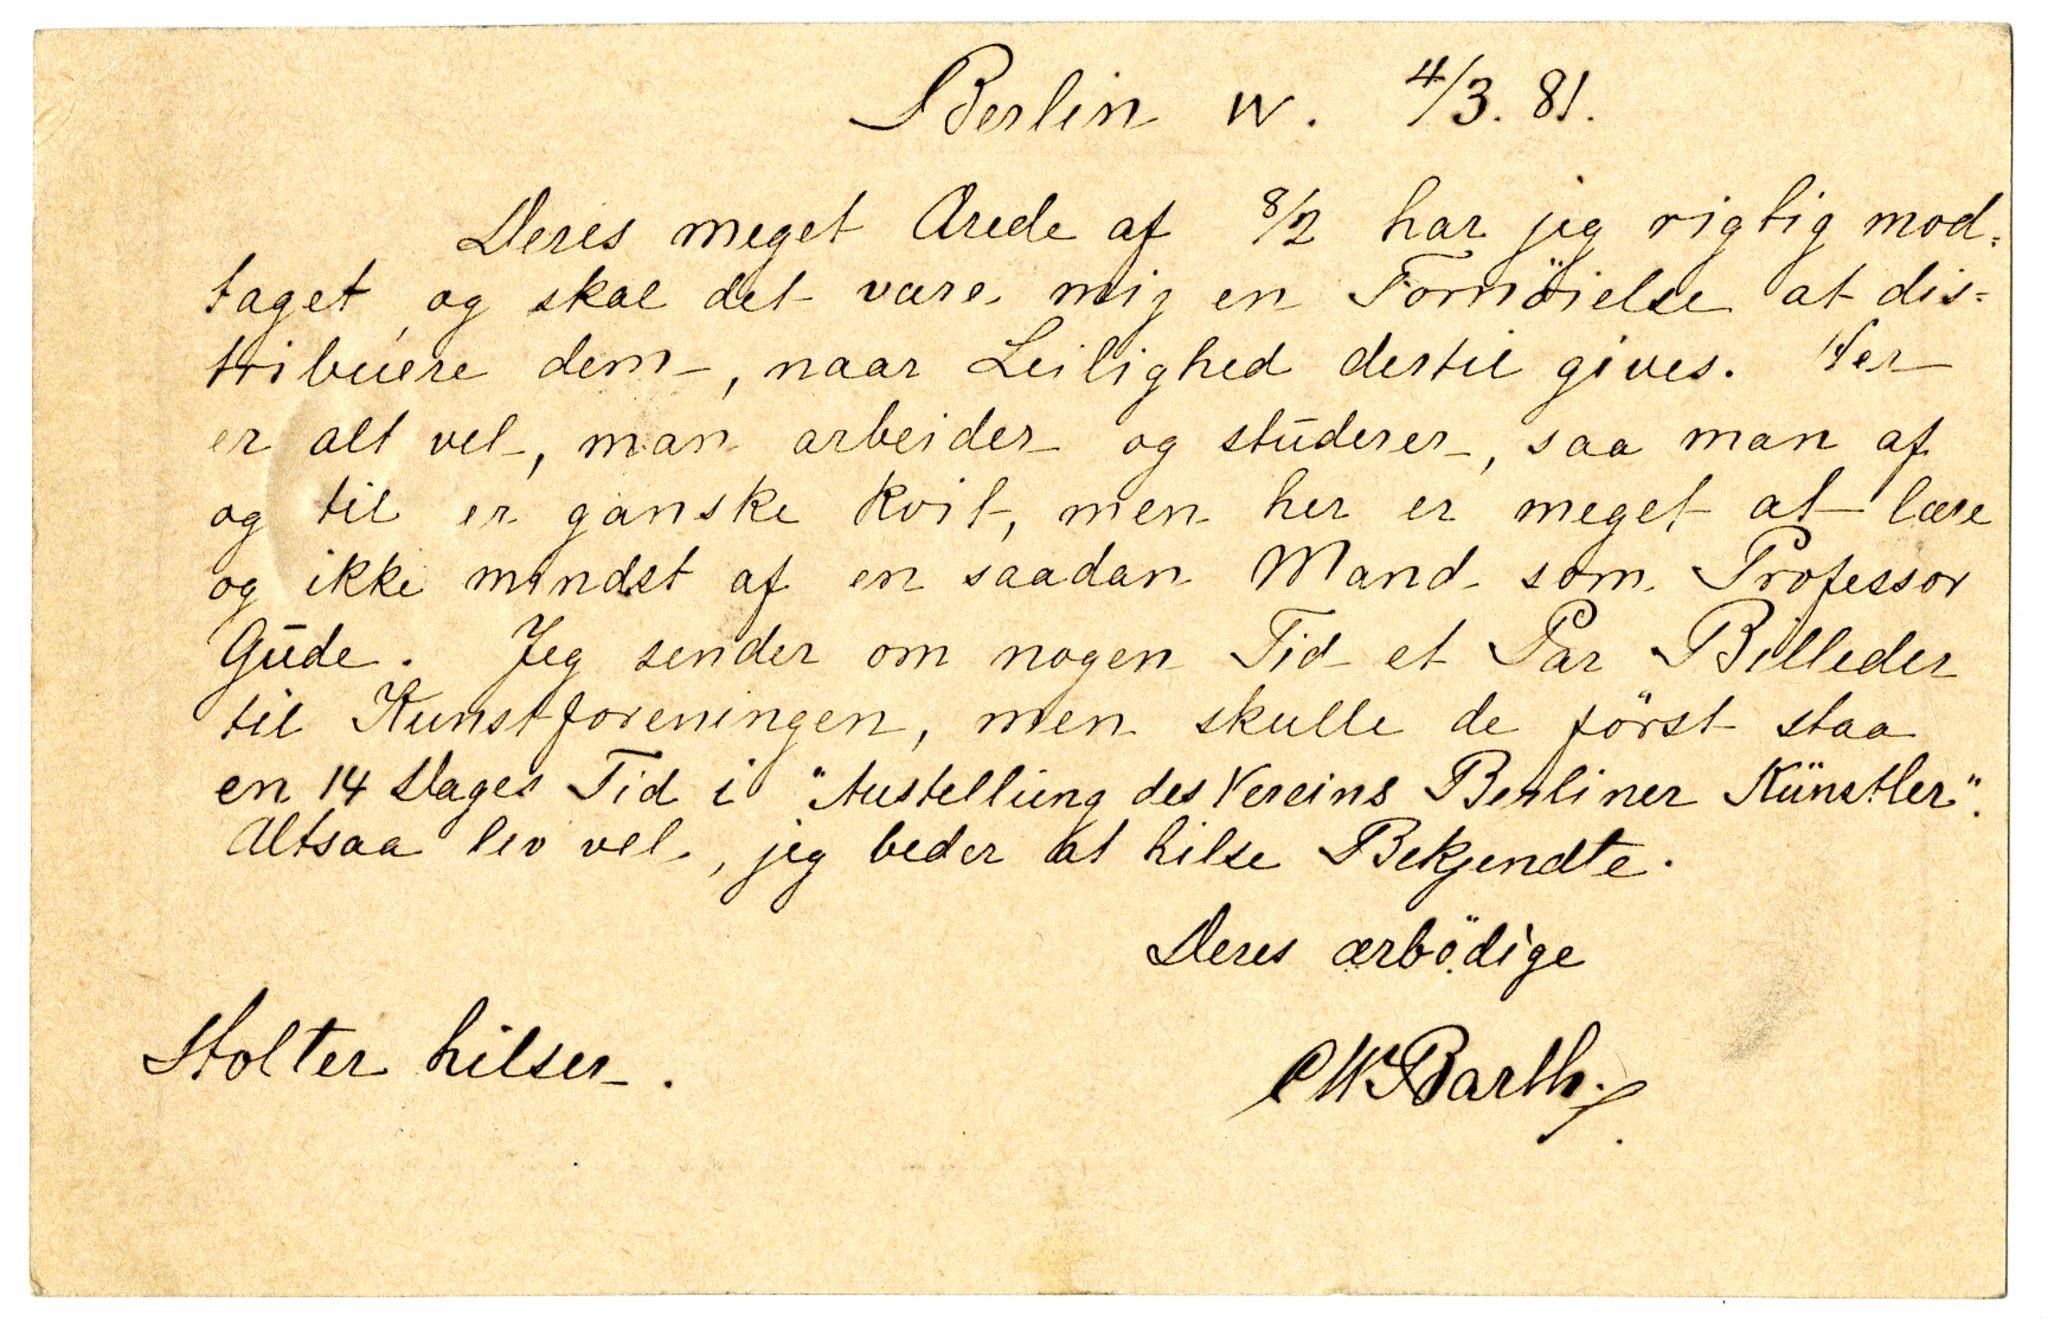 Berlin W. 4/3. 81.
Deres meget Ærede af 8/2 har jeg rigtig mod=
taget, og skal det være mig en Fornöielse at dis=
tribuere dem, naar Leilighed dertil gives. Her
er alt vel, man arbeider og studerer, saa man af
og til er ganske kvit, men her er meget at lære
og ikke mindst af en saadan Mand som Professor
Gude. Jeg sender om nogen Tid et Par Billeder
til Kunstforeningen, men skulle de först staa
en 14 Dages Tid i "Austellung des Vereins Berliner Künstler".
Altsaa lev vel, jeg beder at hilse Bekjendte.
Deres ærbödige
Stolter hilser.
CWBarth.